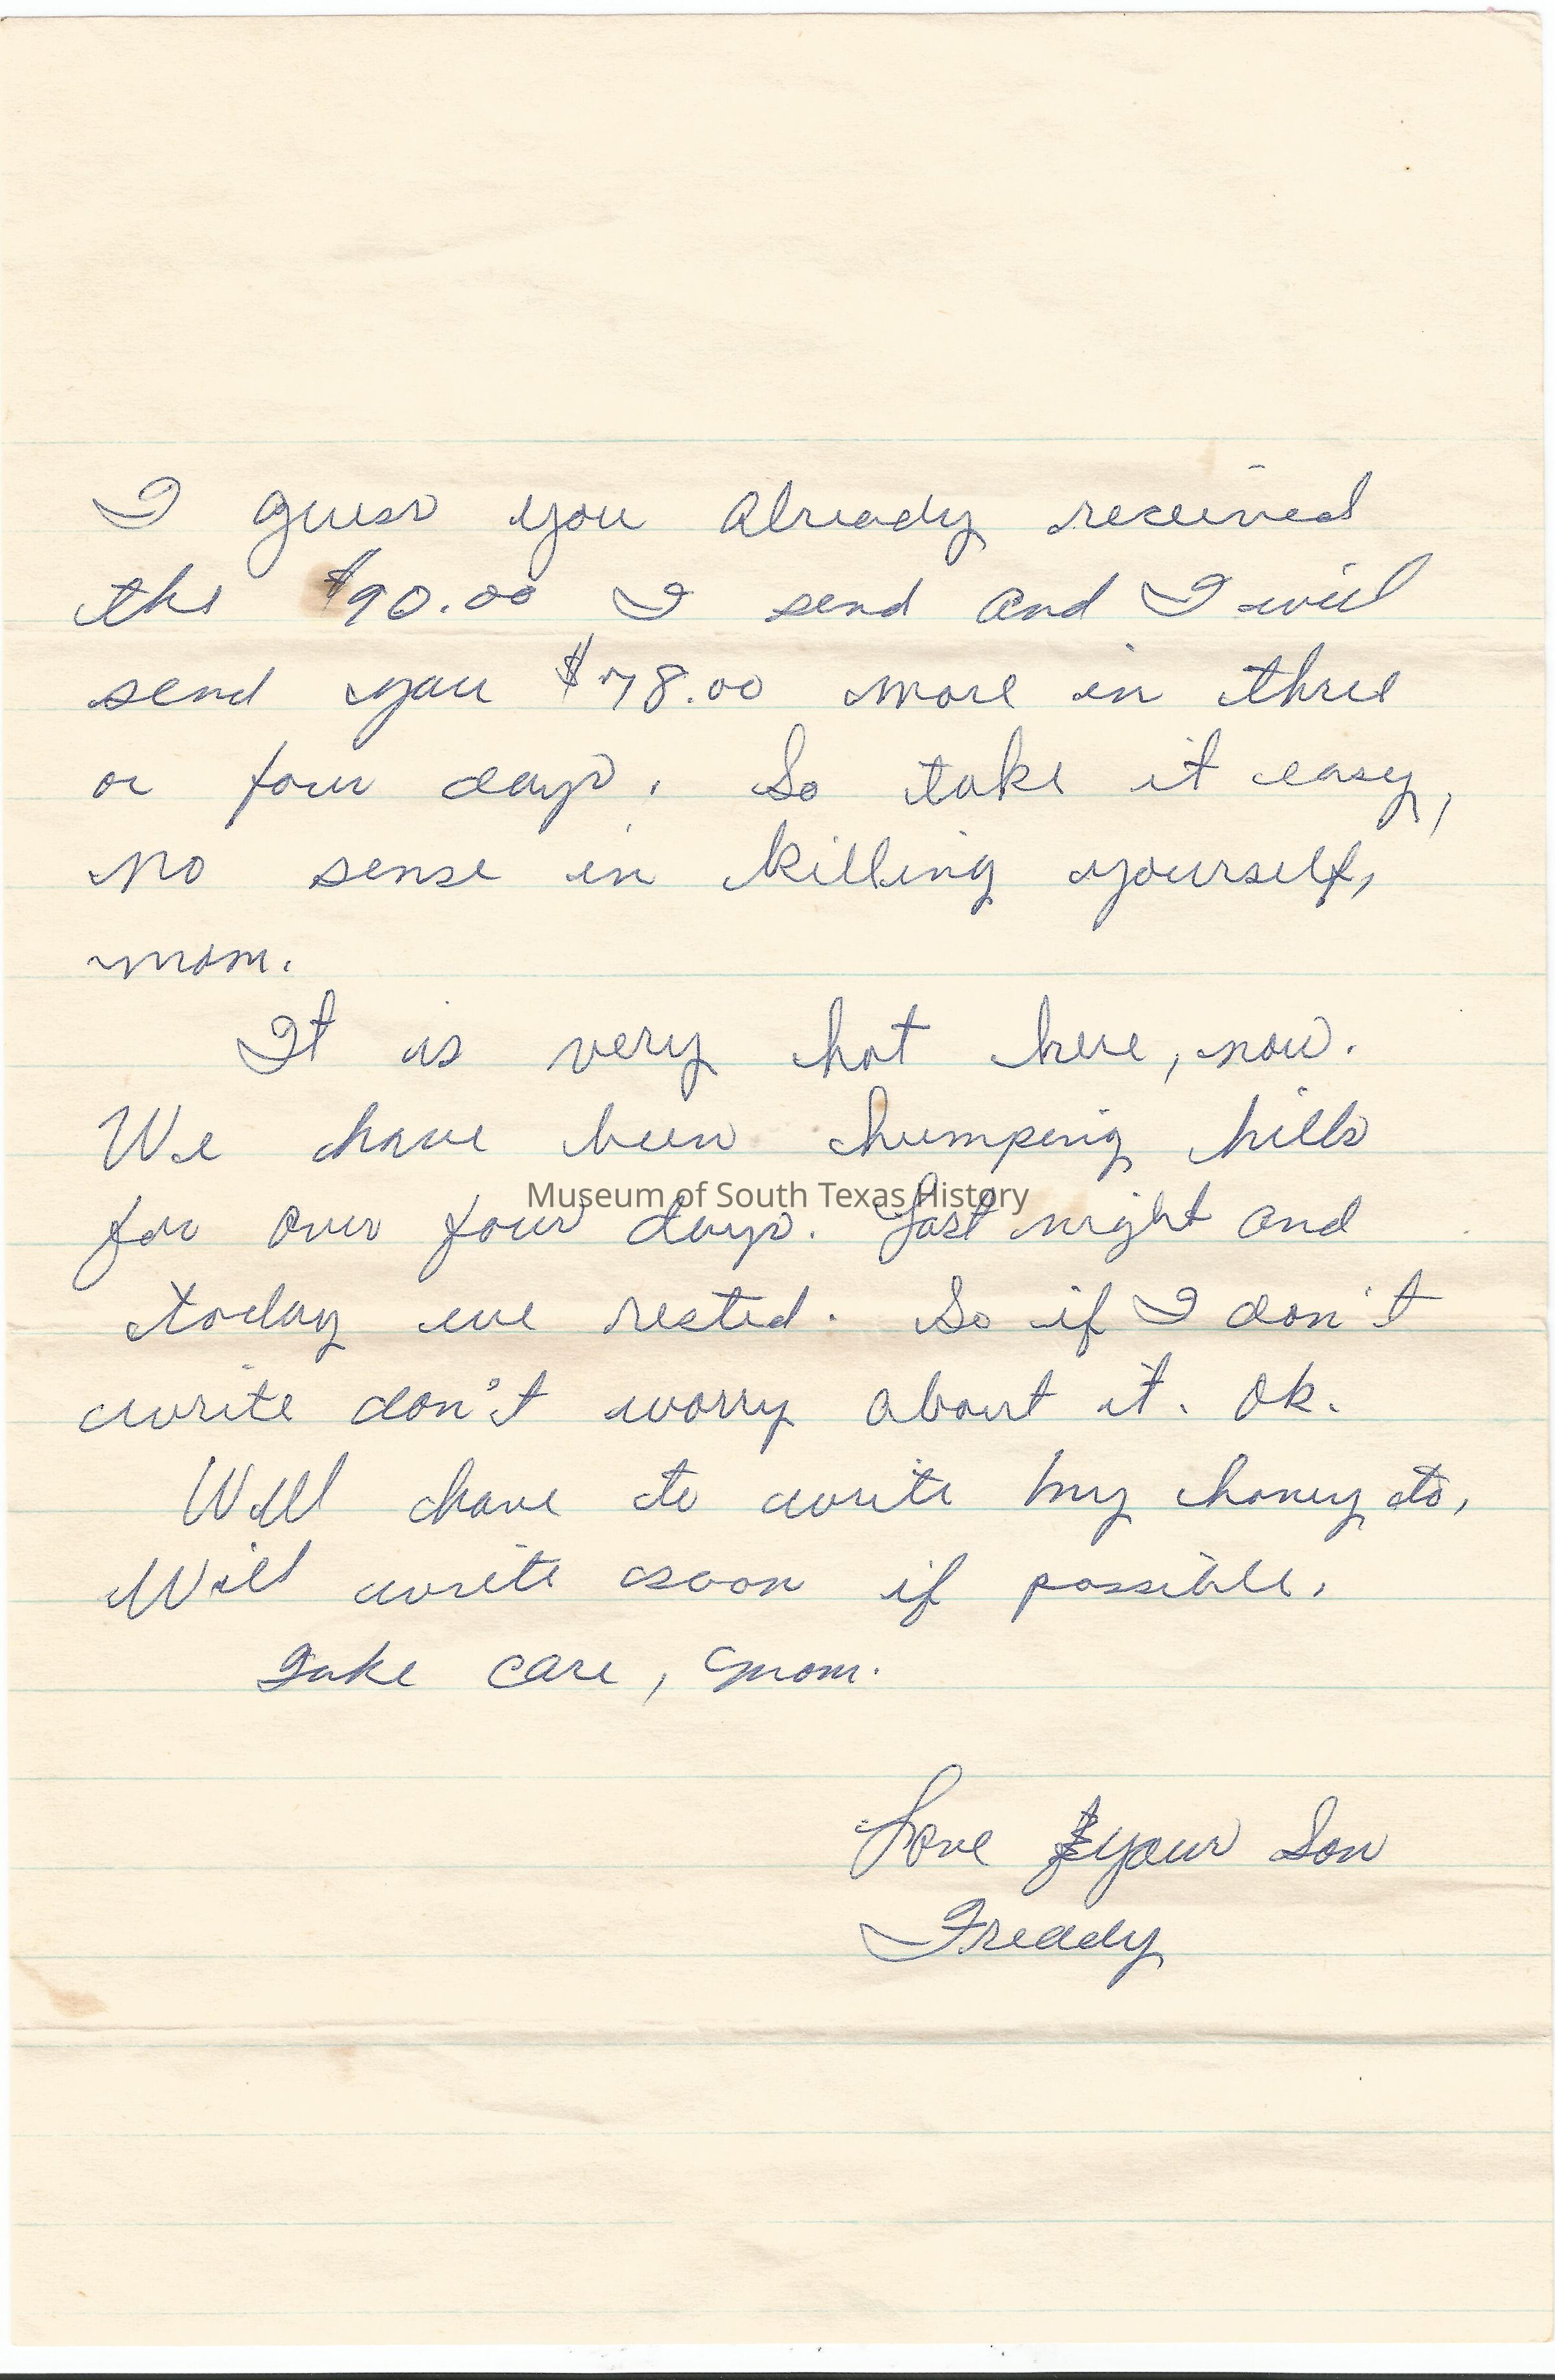 I guess you already received
the $90.00 I send and I will
send you $78.00 more in three
or four days. So take it easy,
no sense in killing yourself,
mom.
It is very hot here, now.
We have been humping hills
for over four days. Last night and
today we rested. So if I don't
write don't worry about it. Ok.
Well have to write my honey to,
Will write soon if possible.
Take care, mom.
Love your Son
Freddy
Museum of South Texas History